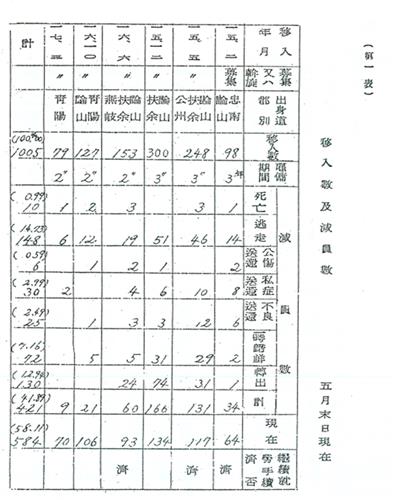 (第一表)
移入數及減員數
五月末日現在
移入年月 募集又ハ斡旋 出身道郡別 移入數 雇傭期間 減員數 死亡 逃走 公傷送還 私症送還 不良送還 一時歸鮮 轉出 計 現在 繼續就勞手續濟否
一五、二 募集 忠南論山 98 3年 1 14 2 8 6 2 1 34 64 濟
一五、五 〃 論山扶余公州 248 3〃 3 46 10 12 29 31 131 117 濟
一五、一二 〃 論山扶余 300 3〃 51 1 6 3 31 74 166 134
一六、六 〃 論山扶余燕岐 153 2〃 3 19 2 4 3 5 24 60 93 濟
一六、一〇 〃 青陽論山 127 2〃 2 12 1 1 5 21 106
一七、三 〃 青陽 79 2〃 1 6 2 9 70
計 (100%) 1005 (0.99) 10 (14.73) 148 (0.59) 6 (2.99) 30 (2.49) 25 (7.16) 72 (12.94) 130 (41.89) 421 (58.11) 584